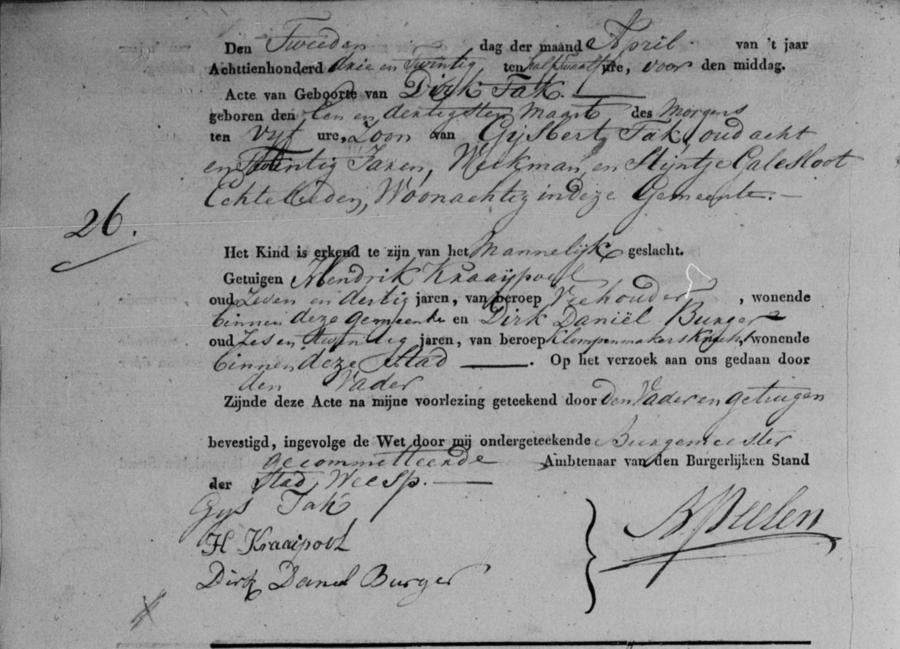 Den Tweeden dag der maand April van 't jaar
Achttienhonderd drie en Twintig ten half twaalf ure, voor den middag.
Acte van Geboorte van Dirk Tak.
geboren den Een en dertigsten Maart des Morgens
ten Vyf ure, Zoon van Gysbert Tak, oud acht
en Twintig Jaren, Werkman, en Stijntje Galesloot
Echtelieden, Woonachtig in deze Gemeente.
26.
Het Kind is erkend te zijn van het Mannelijk geslacht.
Getuigen Hendrik Kraaijpoel
oud Zeven en dertig jaren, van beroep Veehouder, wonende
binnen deze gemeente en Dirk Daniël Burger
oud Zes en twintig jaren, van beroep wonende
binnen deze Stad. Op het verzoek aan ons gedaan door
den Vader
Zijnde deze Acte na mijne voorlezing geteekend door den Vader en getuigen
bevestigd, ingevolge de Wet door mij ondergeteekende Burgemeester
gecommitteerde Ambtenaar van den Burgerlijken Stand
der Stad Weesp.
Gys Tak
H Kraaipoel
Dirk Daniel Burger